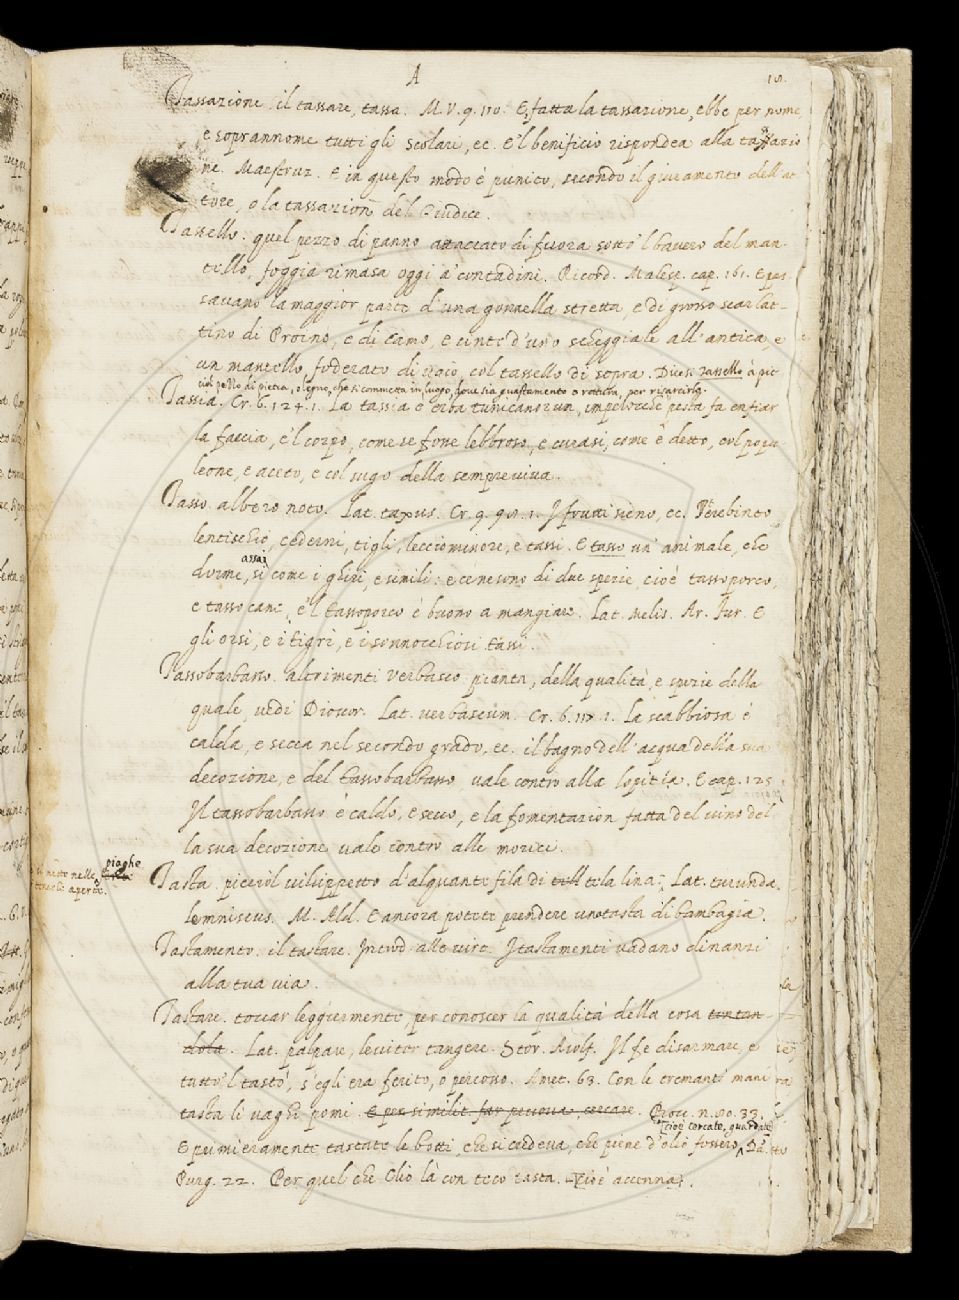 A
Tassazione il tassare, tassa. M. V. 9. 110. E fatta la tassazione, ebbe per nome,
e soprannome tutti gli scolari, ec. E'l benificio rispondea alla tassazio
ne. Maestruz. E in questo modo è punito, secondo il giuramento dell'at
tore, o la tassazion del Giudice.
Tassello. quel pezzo di panno attaccato di fuora sotto'l bavero del man-
tello, foggia rimasa oggi a' contadini. Ricord. Malesp. cap. 161. E pas
savano la maggior parte d'una gonnella stretta, e di grosso scarlat-
tino di Proino, e di Camo, e cinte d'uno scheggiale all'antica, e
un mantello, foderato di vaio, col tassello di sopra. Dicesi tassello à pic
ciol pezzo di pietra, o legno, che si commetta in luogo, dove sia guastamento o rottura, per risarcirlo.
Tassia. Cr. 6. 124. 1. La tassia è erba turicanorum, impelocchè pesta fa enfiar
la faccia, e'l corpo, come se fosse lebbroso, e curasi, come è detto, col popu
leone, e aceto, e col sugo della sempreviva.
Tasso. albero noto. Lat. taxus. Cr. 9. 98. 1. I frutti sieno, ec. Terebinto
lentischio, cederni, tigli, leccio minore, e tassi. E tasso un' animale, che
assai
dorme, sì come i ghiri, e simili: e cenesono di due spezie cioè tassoporco,
e tasso cane, e'l tassoporco è buono a mangiare. Lat. Melis. Ar. Fur. E
gli orsi, e i tigri, e i sonnocchiosi tassi.
Tassobarbasso. altrimenti verbasco pianta, della qualità, e spezie della
quale, vedi Dioscor. Lat. verbascum. Cr. 6. 1. La scabbiosa è
calda, e secca nel secondo grado, ec. il bagno dell'acqua della sua
decozione, e del tassobarbasso vale contro alla lopitia. E cap. 125
Il tassobarbasso è caldo, e secco, e la fomentazion fatta del vino del
la sua decozione vale contro alle morici.
piaghe
si mette nelle
tenerle aperte.
Tasta. picciol viluppetto d'alquante fila di tela lina. Lat. turunda,
lemniscus. M. Ald. E ancora potete prendere una tasta di bambagia.
Tastamento. il tastare. Introd. alle virt. I tastamenti vadano dinanzi
alla tua via.
Tastare. toccar leggiermente, per conoscer la qualità della cosa tentan-
dola. Lat. palpare, leviter tangere. Stor. Aiolf. Il fe disarmare, e
tutto'l tastò, s'egli era ferito, o percosso. Amet. 63. Con le tremanti mani
tasta li vaghi pomi. E per similit. far pruova, cercare. Bocc. n. 80. 33.
cioè cercate, guardate
E primieramente tastate le botti, che si credeva, che piene d'olio fossero, Dà
Purg. 22. Per quel che Clio là con teco tasta. cioè accenna.